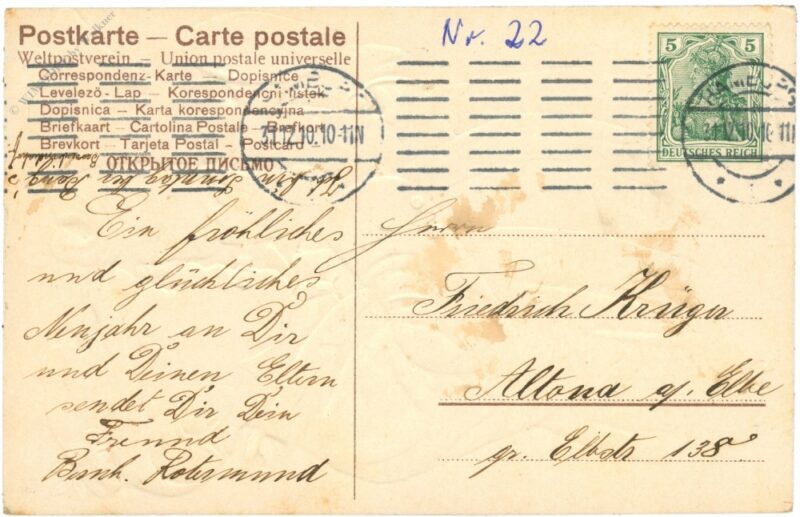 Postkarte — Carte postale
Weltpostverein — Union postale universelle
Correspondenz-Karte — Dopisnice
Levelező-Lap — Korespondencni listek
Dopisnica — Karta korespondencyjna
Briefkaart — Cartolina Postale — Brefkort
Brevkort — Tarjeta Postal — Postcard
ОТКРЫТОЕ ПИСЬМО
Nr. 22
5 5
DEUTSCHES REICH
31.12.10.10-11N
31.12.10.10-11N
Ein fröhliches
und glückliches
Neujahr an Dir
und Deinen Eltern
sendet Dir Dein
Freund
Bernh. Rotermund
Herrn
Friedrich Krüger
Altona a/ Elbe
gr. Elbstr 138